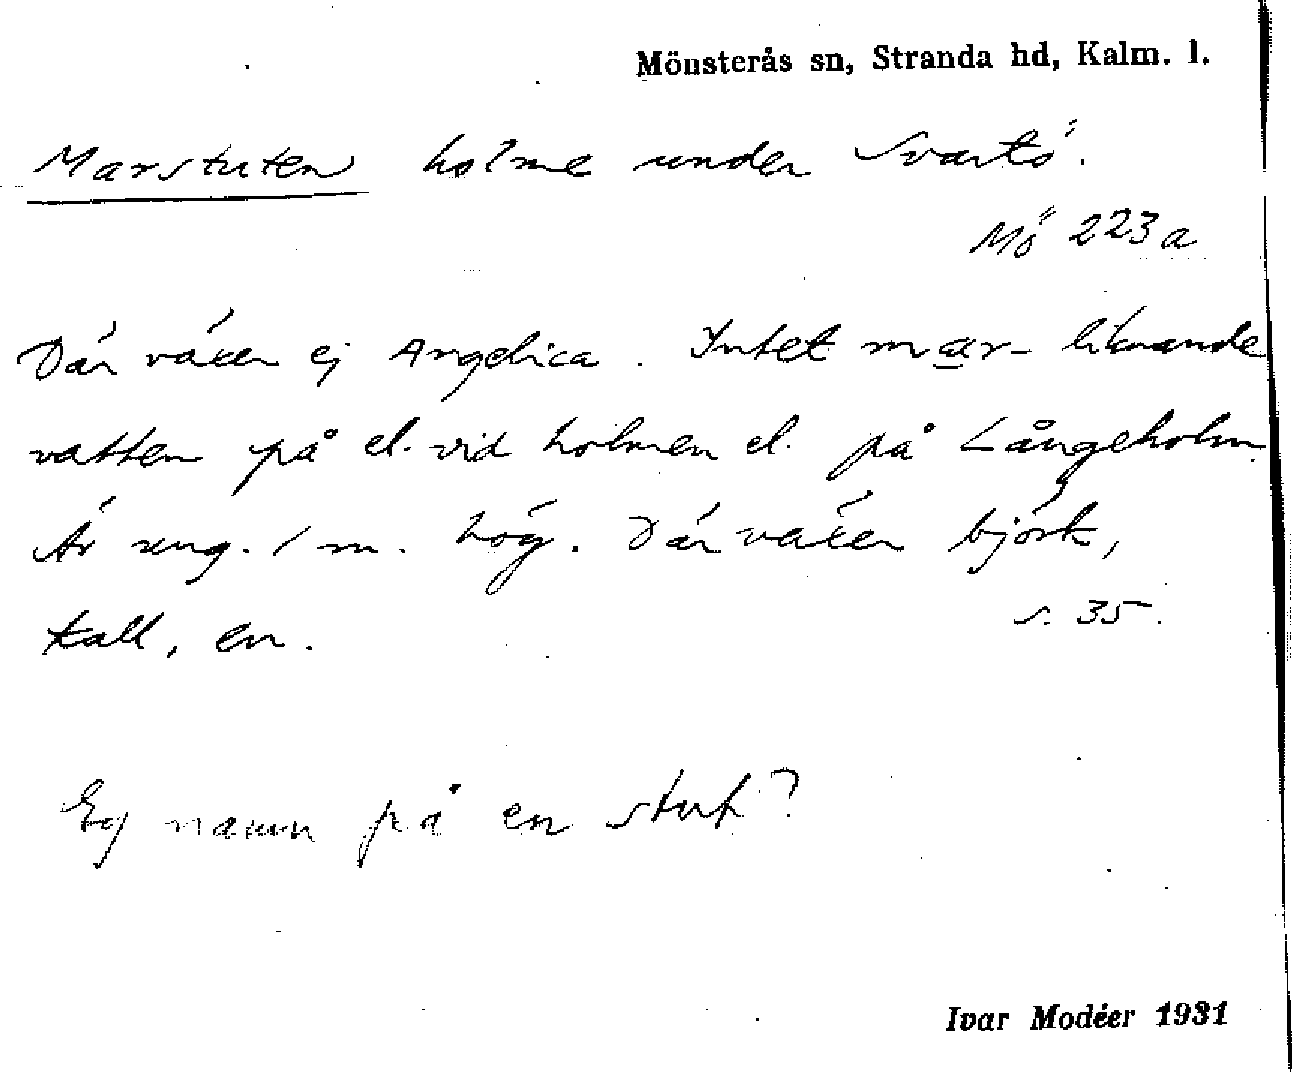 Mönsterås sn, Stranda hd, Kalm. l.
Marstuten holme under Svartö.
Mö 223a
Där växer ej Angelica. Intet mar-liknande
vatten på el. vid holmen el. på Långeholm.
Är ung. 1 m. hög. Där växer björk,
tall, en.
s. 35.
Eg namn på en stut?
Ivar Modéer 1931